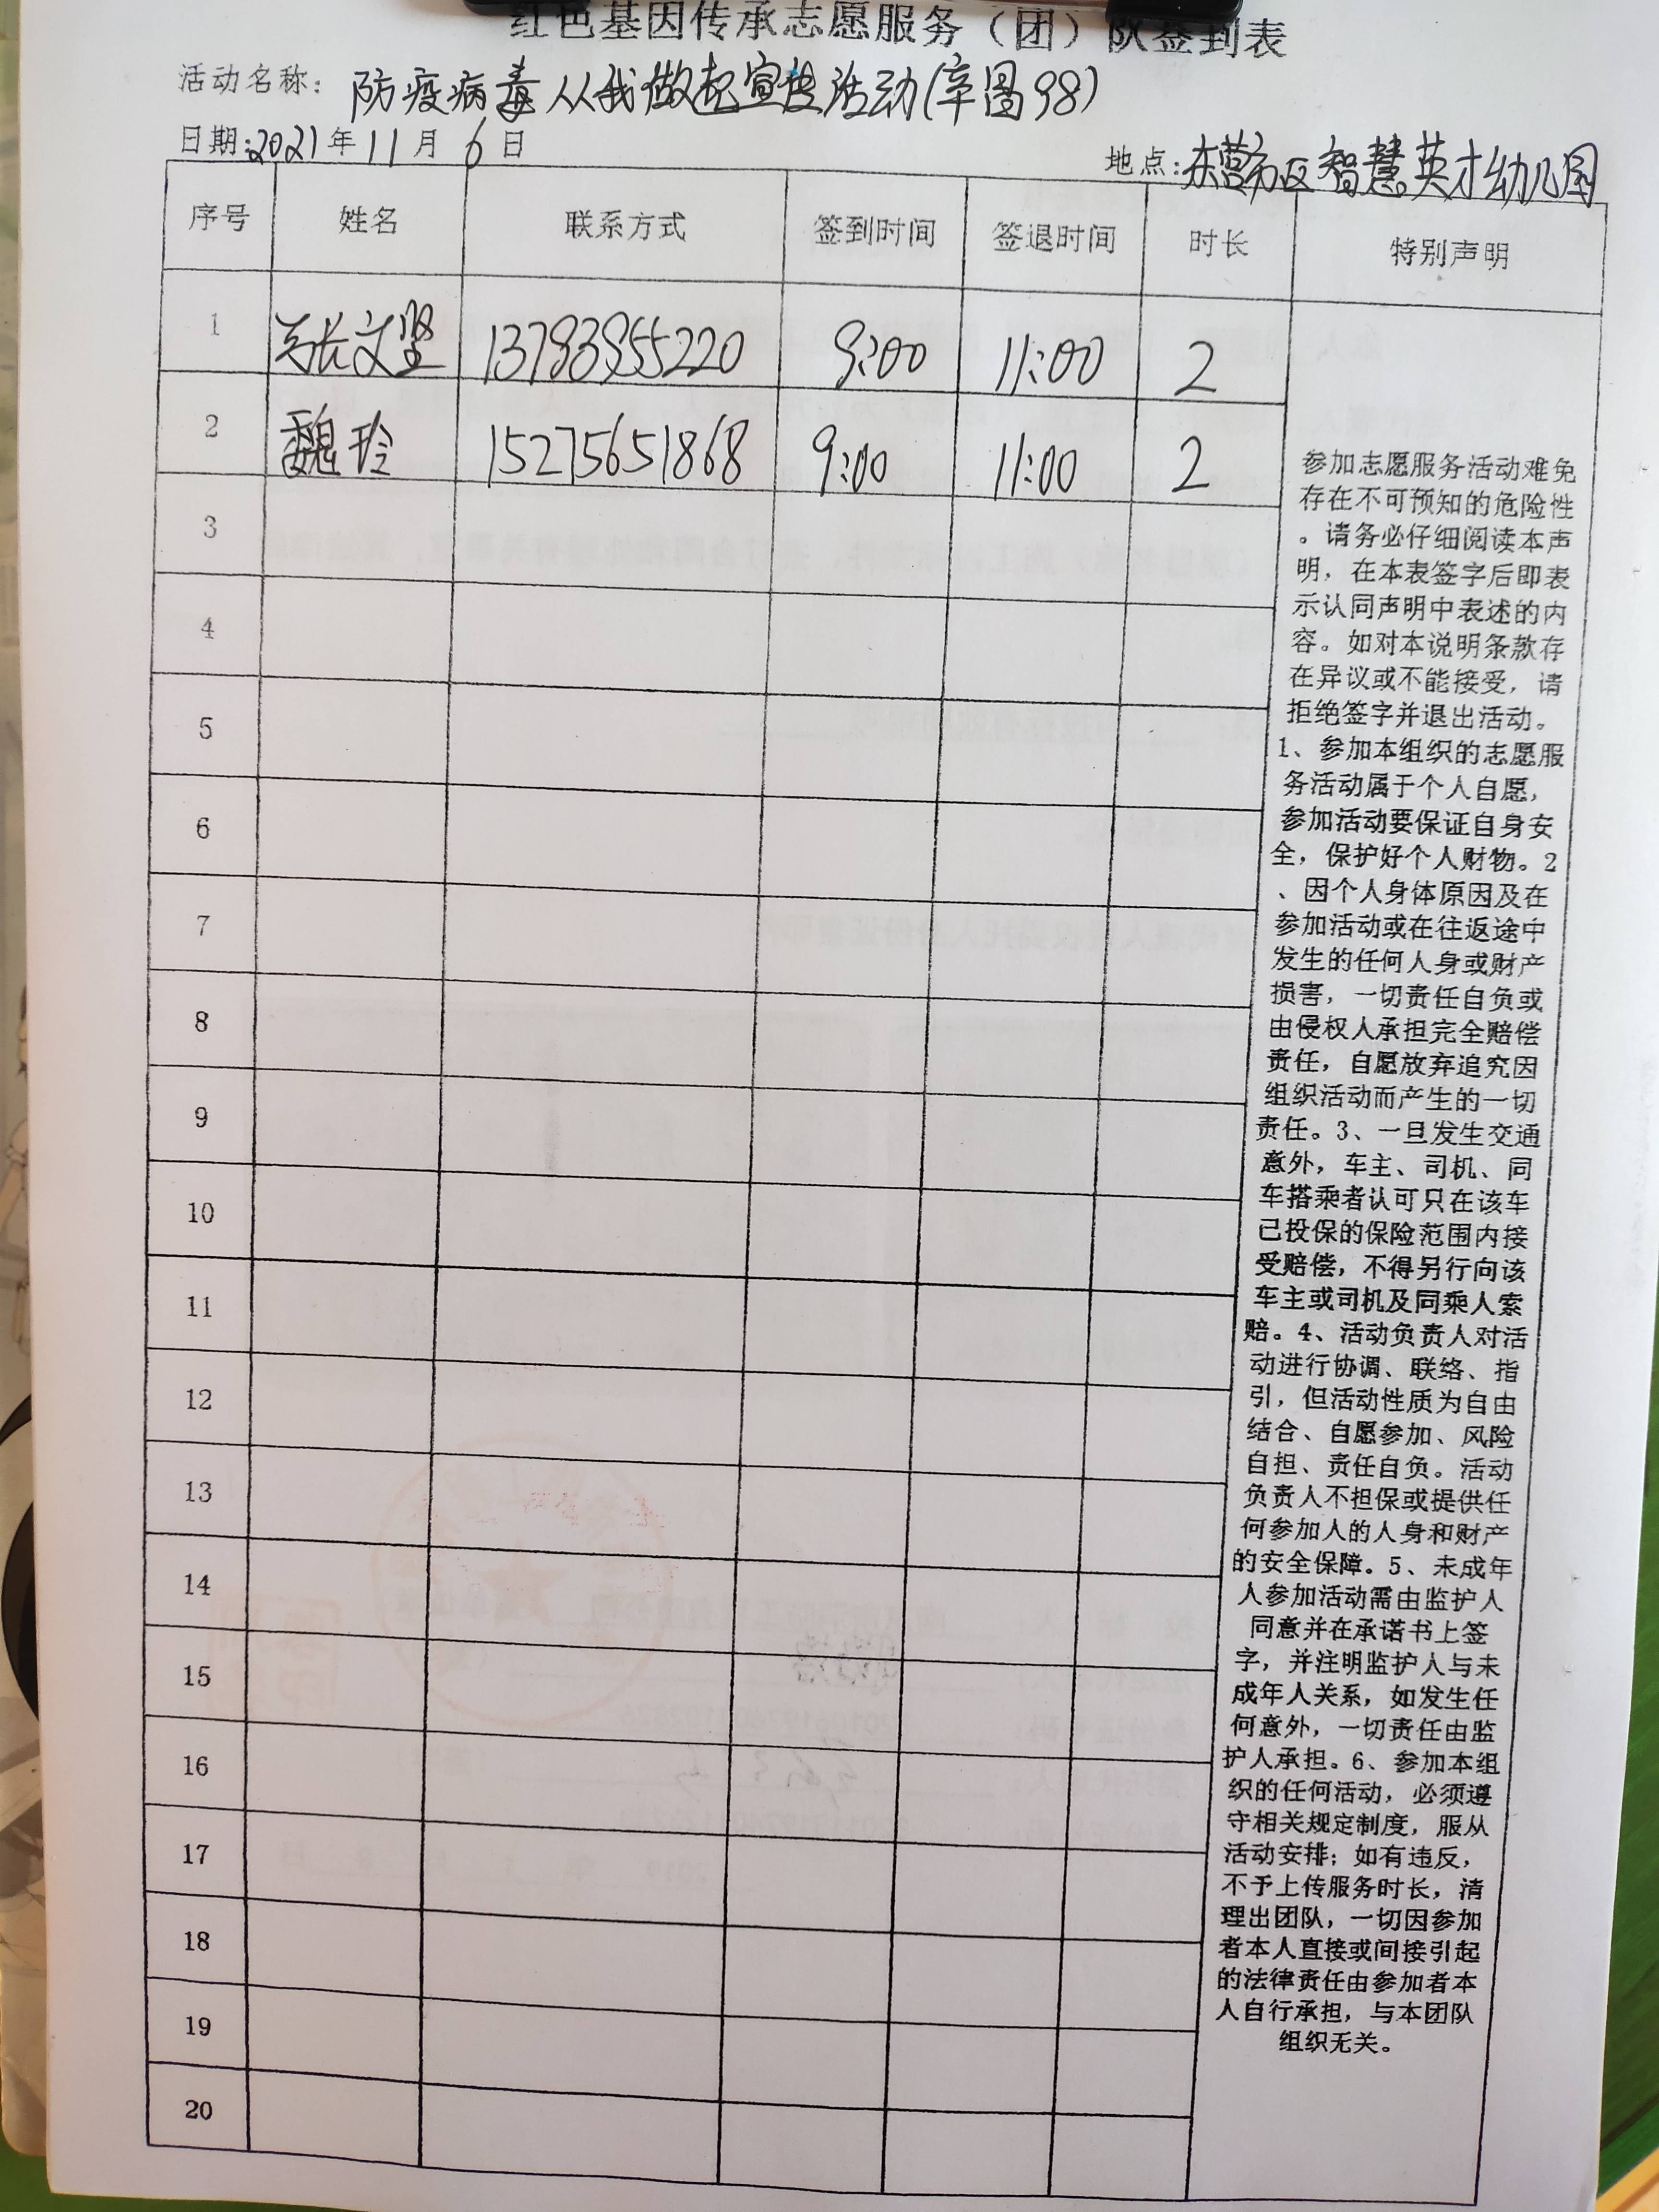 红色基因传承志愿服务（团）队签到表
活动名称：防疫病毒从我做起宣传活动(辛图98)
日期:2021年11月6日
地点:东营市区智慧英才幼儿园
序号 姓名 联系方式 签到时间 签退时间 时长 特别声明
1 文坚 13793955220 9:00 11:00 2
2 魏玲 15275651868 9:00 11:00 2
3
4
5
6
7
8
9
10
11
12
13
14
15
16
17
18
19
20
参加志愿服务活动难免
存在不可预知的危险性
。请务必仔细阅读本声
明，在本表签字后即表
示认同声明中表述的内
容。如对本说明条款存
在异议或不能接受，请
拒绝签字并退出活动。
1、参加本组织的志愿服
务活动属于个人自愿，
参加活动要保证自身安
全，保护好个人财物。2
、因个人身体原因及在
参加活动或在往返途中
发生的任何人身或财产
损害，一切责任自负或
由侵权人承担完全赔偿
责任，自愿放弃追究因
组织活动而产生的一切
责任。3、一旦发生交通
意外，车主、司机、同
车搭乘者认可只在该车
已投保的保险范围内接
受赔偿，不得另行向该
车主或司机及同乘人索
赔。4、活动负责人对活
动进行协调、联络、指
引，但活动性质为自由
结合、自愿参加、风险
自担、责任自负。活动
负责人不担保或提供任
何参加人的人身和财产
的安全保障。5、未成年
人参加活动需由监护人
同意并在承诺书上签
字，并注明监护人与未
成年人关系，如发生任
何意外，一切责任由监
护人承担。6、参加本组
织的任何活动，必须遵
守相关规定制度，服从
活动安排；如有违反，
不予上传服务时长，清
理出团队，一切因参加
者本人直接或间接引起
的法律责任由参加者本
人自行承担，与本团队
组织无关。